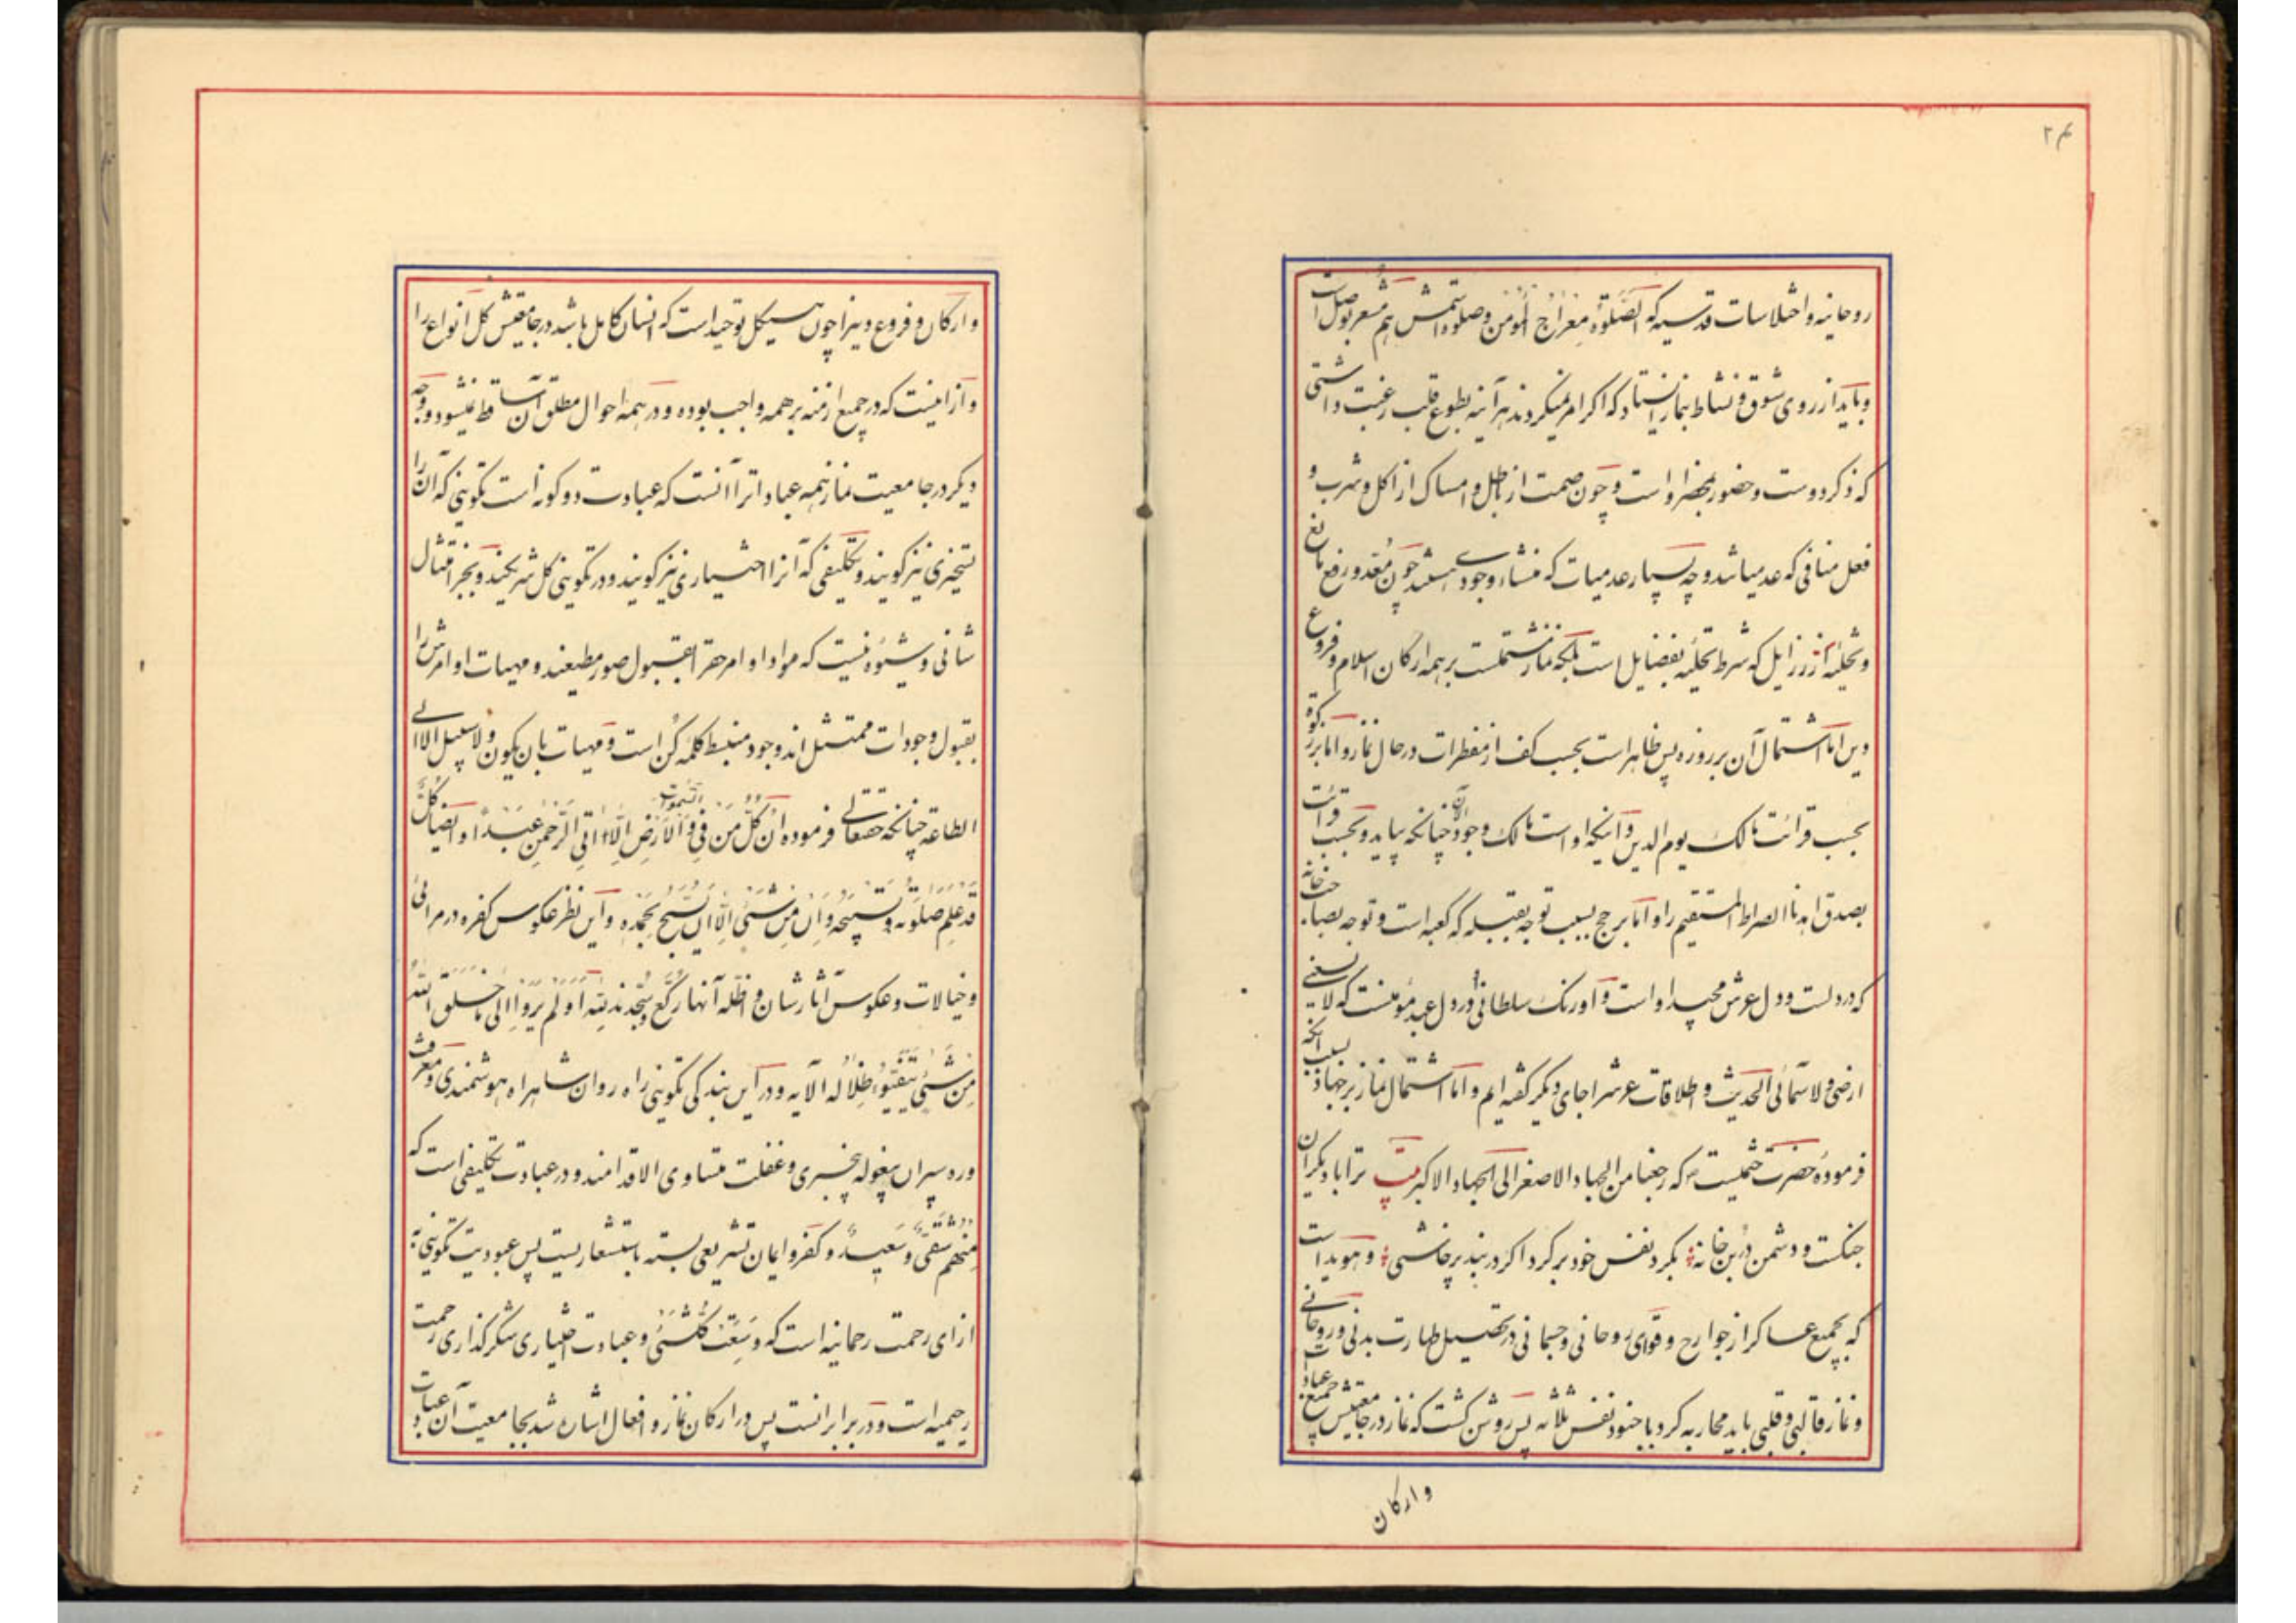 ۲۴
روحانیه و اختلاسات قدسیه که الصّلوة معراج المؤمن و صلوة اسمش هم مشعر بوصل است
و باید از روی شوق و نشاط بنماز ایستاد که اگر امر نمیکردند هر آینه بطوع قلب رغبت داشتی
که ذکر دوست و حضور بمحضر او است و چون صمت از باطل و امساک از اکل و شرب و
فعل منافی که عدمیاتند و چه بسیار عدمیات که منشاء وجودی هستند چون مُعّد و رفع مانع
و تخلیه از رزایل که شرط تحلیه بفضایل است بلکه نماز مشتملست بر همه ارکان اسلام و فروع
دین اما اشتمال آن بر روزه پس ظاهر است بحسب کف از مفطرات در حال نماز و اما بر زکوة
بحسب قرائت مالک یوم الدین و اینکه او است مالک وجود الآن چنانکه بیاید و بحسب قرائت
بصدق اهدنا الصراط المستقیم را و اما بر حج بسبب توجه بقبله که کعبه است و توجه بصاحب خانه
که در دلست و دل عرش مجید او است و اورنگ سلطانی او در دل عبد مؤمنست که لا یسعنی
ارضی و لا سمائی الحدیث و اطلاقات عرش را جای دیگر گفته‌ایم و اما اشتمال نماز بر جهاد بسبب آنکه
فرموده حضرت ختمیت ص که رجعنا من الجهاد الاصغر الی الجهاد الاکبر بیت ترا با دیگران
جنگست و دشمن در بن خانه بگرد نفس خود برگرد اگر در بند پرخاشی و هویدا است
که بجمیع عساکر از جوارح و قوای روحانی و جسمانی در تحصیل طهارت بدنی و روحانی
و نماز قالبی و قلبی باید محاربه کرد با جنود نفس ثلاثه پس روشن گشت که نماز در جامعیتش جمیع عبادات
وارکان
و ارکان و فروع دین را چون هیکل توحید است که انسان کامل باشد در جامعیتش کل انواع را
و از اینست که در جمیع ازمنه بر همه واجب بوده و در همه احوال مطلق آن ساقط نمیشود و وجه
دیگر در جامعیت نماز همه عبادات را آنست که عبادت دو گونه است تکوینی که آن را
تسخیری نیز گویند و تکلیفی که آنرا اختیاری نیز گویند و در تکوینی کل شریکند و بجز امتثال
شانی و شیوه نیست که مواد اوامر حق را بقبول صور مطیعند و مهیات اوامرش را
بقبول وجودات ممتثل‌اند وجود منبسط کلمه کُن است و مهیات بان یکون و لا سبیل الا الی
الطاعة چنانکه حقتعالی فرموده ان کُلّ مَن فی السّموات و الاَرض اِلّا اتی الرّحمن عبدًا و ایضا کلٌّ
قَد عَلِم صلوته و تسبیحه و اِن مِن شیئ اِلّا یُسبّح بحمده و این نظر عکوس کفره در مرائی
و خیالات و عکوس آثارشان و اظله آنها رکّع و سُجّدند لِلّه اَوَلم یَروا اِلی ما خلق الله
مِن شیئ یتفیّؤا ظلاله الآیه و در این بندگی تکوینی راه روان شاهراه هوشمندی و معرفت
و ره سپران بیغوله بیخبری و غفلت متساوی الاقدامند و در عبادت تکلیفی است که
مِنهم شقیٌّ و سعیدٌ و کفر و ایمان تشریعی بسته باستشعاریست پس عبودیت تکوینی به
ازای رحمت رحمانیه است که وسِعَت کُلّشیئ و عبادت اختیاری شکرگذاری رحمت
رحیمیه است و در برابر آنست پس در ارکان نماز و افعال اشاره شد بجامعیت آن عبادات